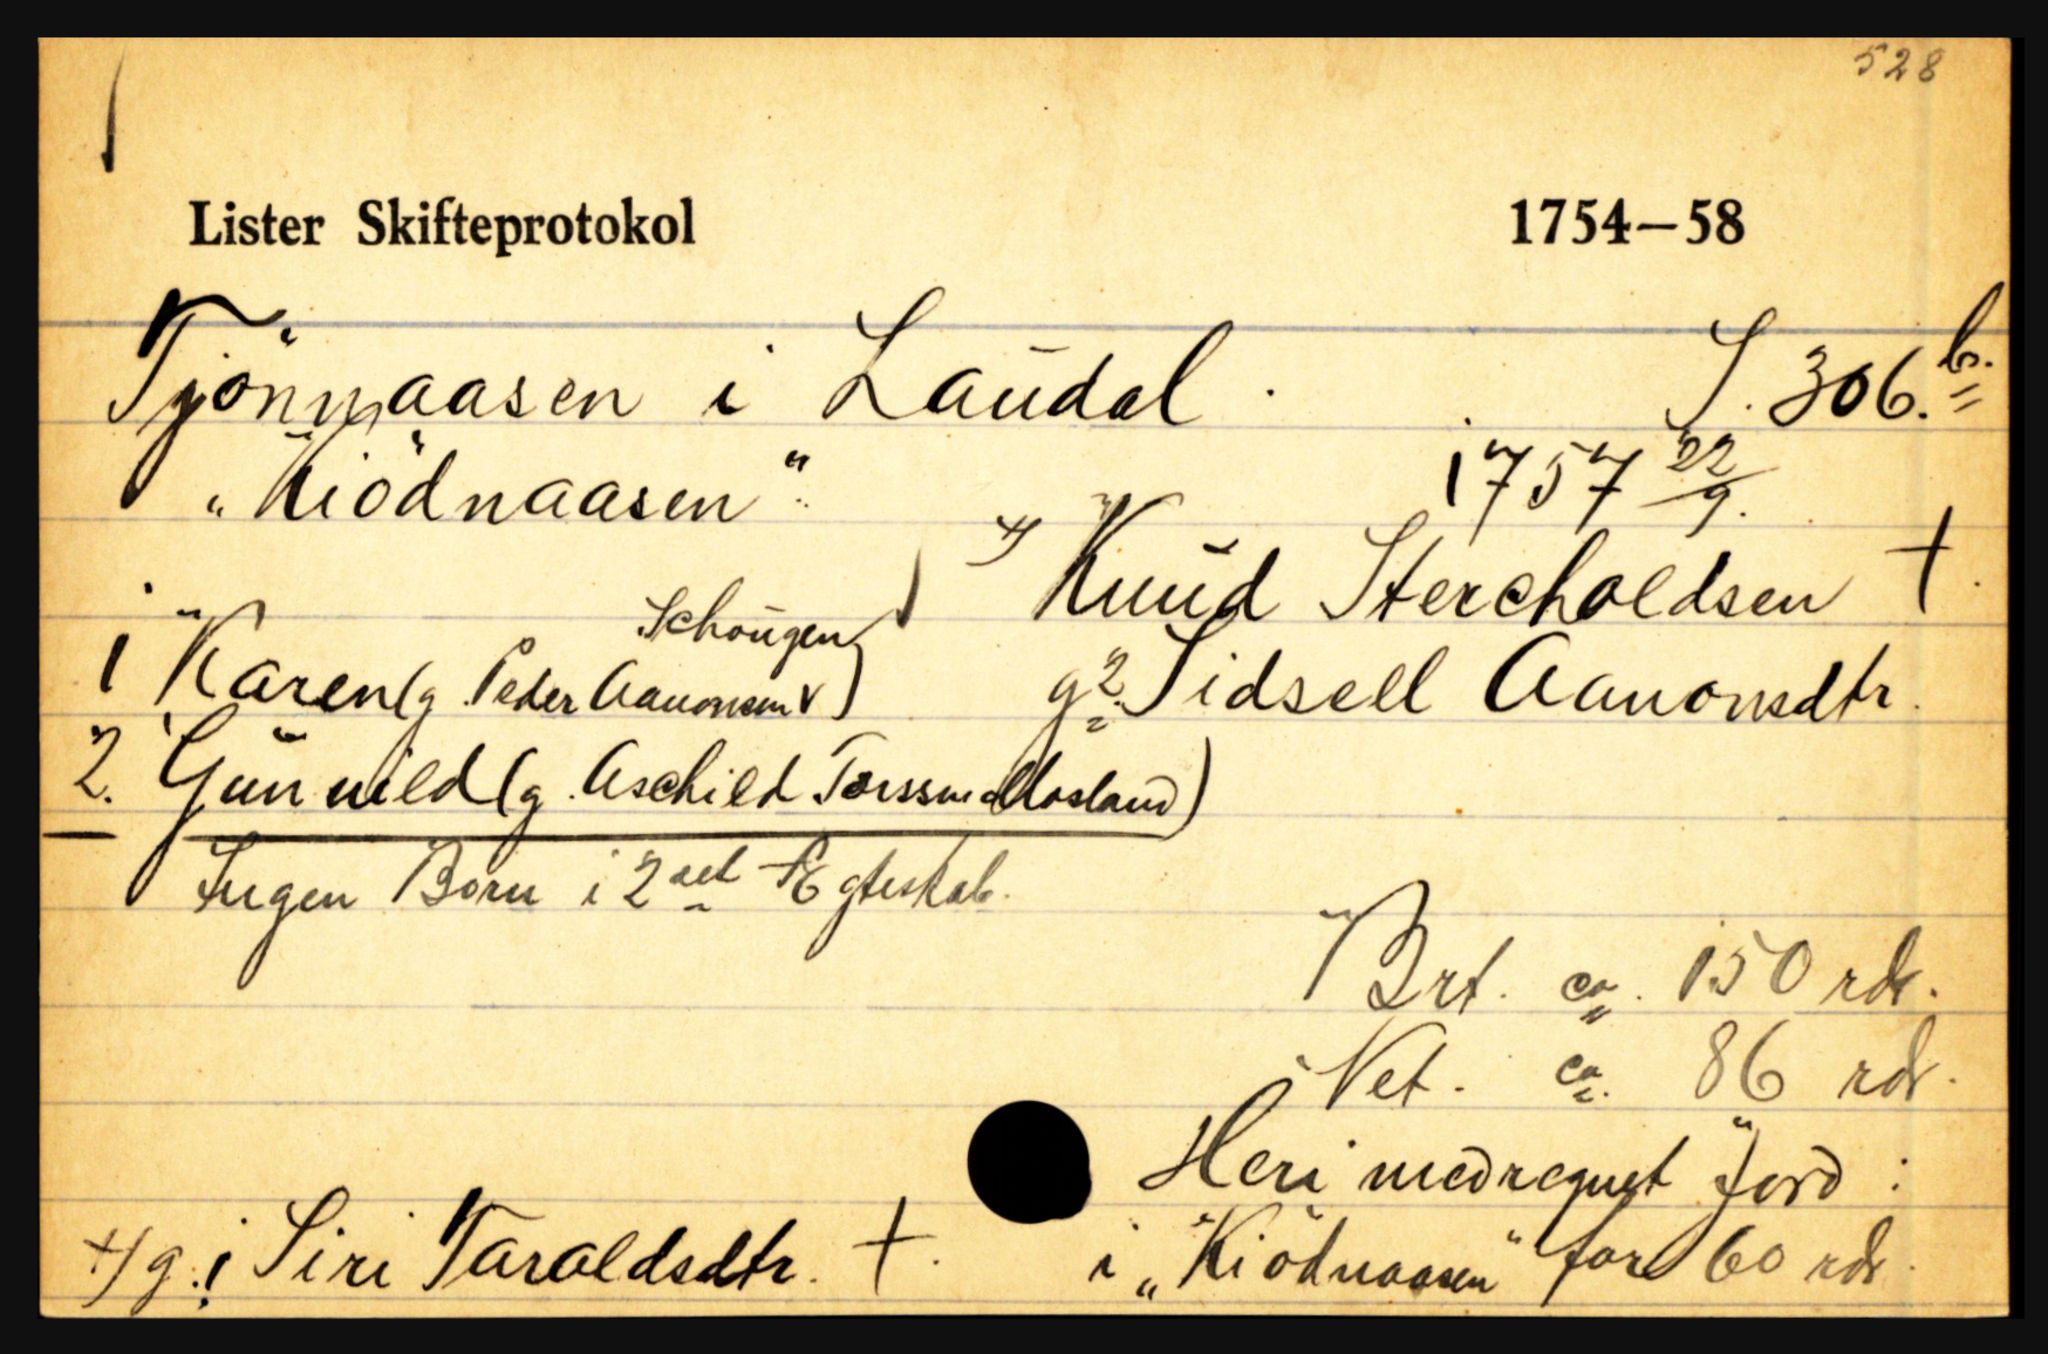 528
Lister Skifteprotokol 1754–58
Tjönnaasen i Laudal. S. 306.b.
„Kiödnaasen“. 1757 22/9.
+) Knud Stercholdsen †.
1 Karen (g. Peder Aanonsen Schougen)
g. 2. Sidsell Aanonsdtr.
2. Gunnild (g. Aschild Torssen Mosland)
Ingen Born i 2det Egteskab.
Brt. ca. 150 rdr.
Net. ca. 86 rdr.
Heri medregnet Jord:
i „Kiödnaasen“ for 60 rdr.
+) g. 1 Siri Taraldsdtr. †.